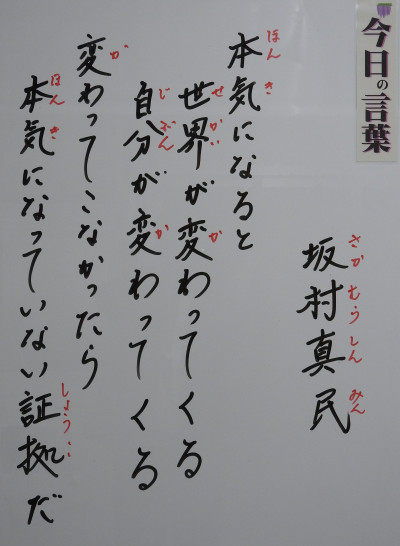 今日の言葉
坂村真民
さかむらしんみん
本気になると
ほんき
世界が変わってくる
せかい か
自分が変わってくる
じぶん か
変わってこなかったら
か
本気になっていない証拠だ
ほんき しょうこ